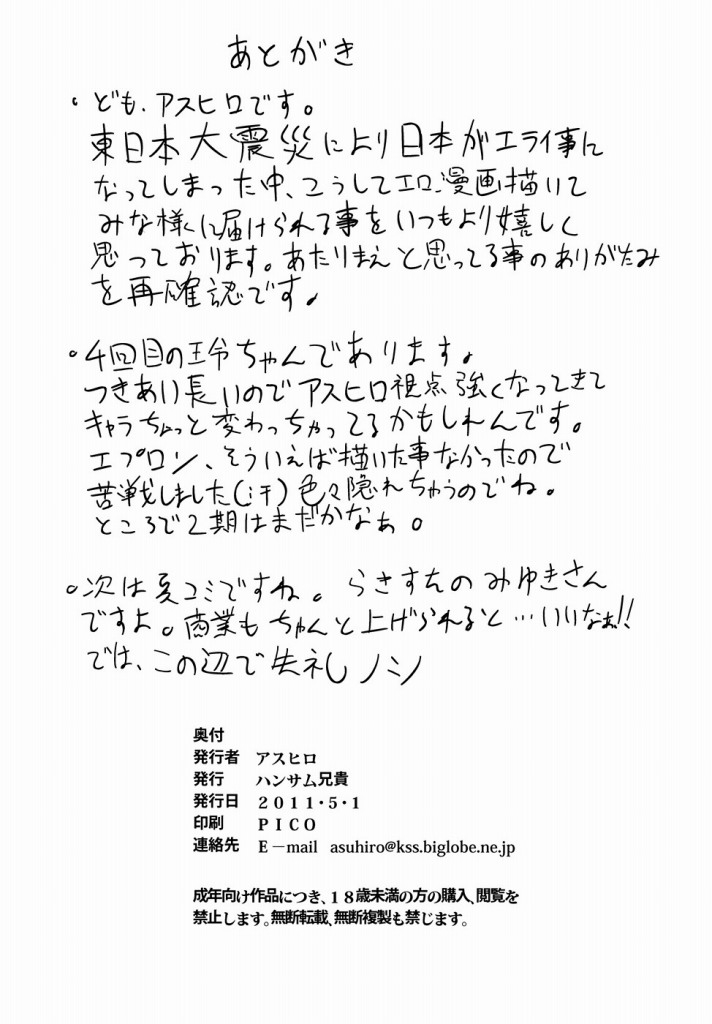 あとがき
・ども、アスヒロです。
東日本大震災により日本がエライ事に
なってしまった中、こうしてエロ漫画描いて
みな様に届けられる事をいつもより嬉しく
思っております。あたりまえと思ってる事のありがたみ
を再確認です。
・4回目の玲ちゃんであります。
つきあい長いのでアスヒロ視点強くなってきて
キャラちょっと変わっちゃってるかもしれんです。
エプロン、そういえば描いた事なかったので
苦戦しました(汗)色々隠れちゃうのでね。
ところで2期はまだかなぁ。
・次は夏コミですね。らさすたのみゆきさん
ですよ。商業もちゃんと上げられると…いいなぁ!!
では、この辺で失礼ノシ
奥付
発行者 アスヒロ
発行 ハンサム兄貴
発行日 2011・5・1
印刷 PICO
連絡先 E-mail asuhiro@kss.biglobe.ne.jp
成年向け作品につき、18歳未満の方の購入、閲覧を
禁止します。無断転載、無断複製も禁じます。